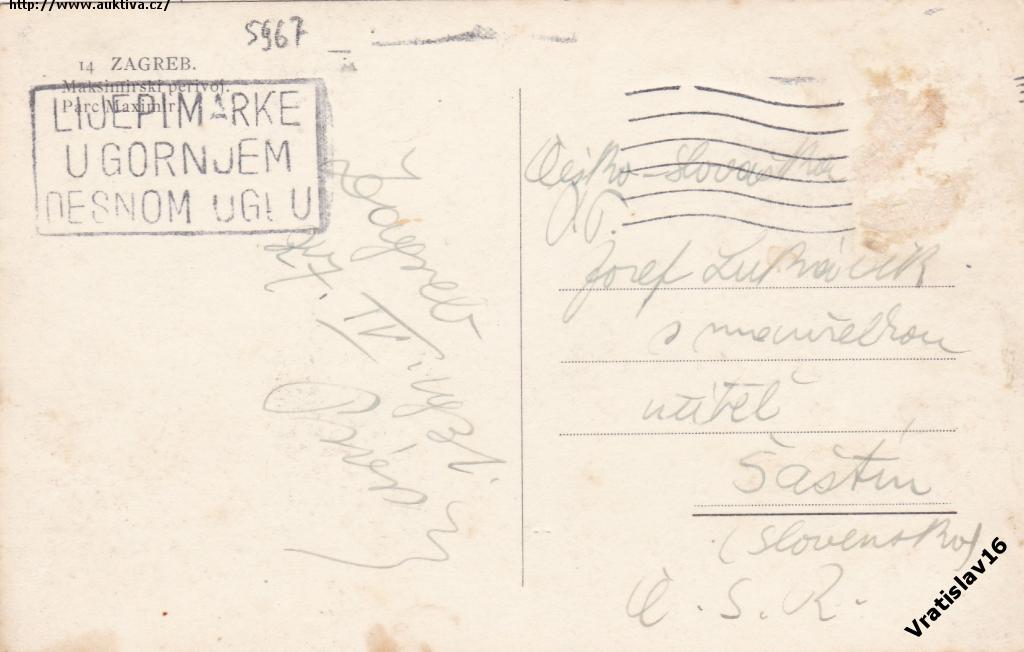 http://www.auktiva.cz/
5967
14 ZAGREB.
Maksimirski perivoj.
Parc Maximir
LIJEPI MARKE
U GORNJEM
DESNOM UGLU
Zagreb
27. IV. 1931.
Česko-slovaška
Josef Lukáčik
s manželkou
učitel
Šaštín
(Slovensko)
Č. S. R.
Vratislav16